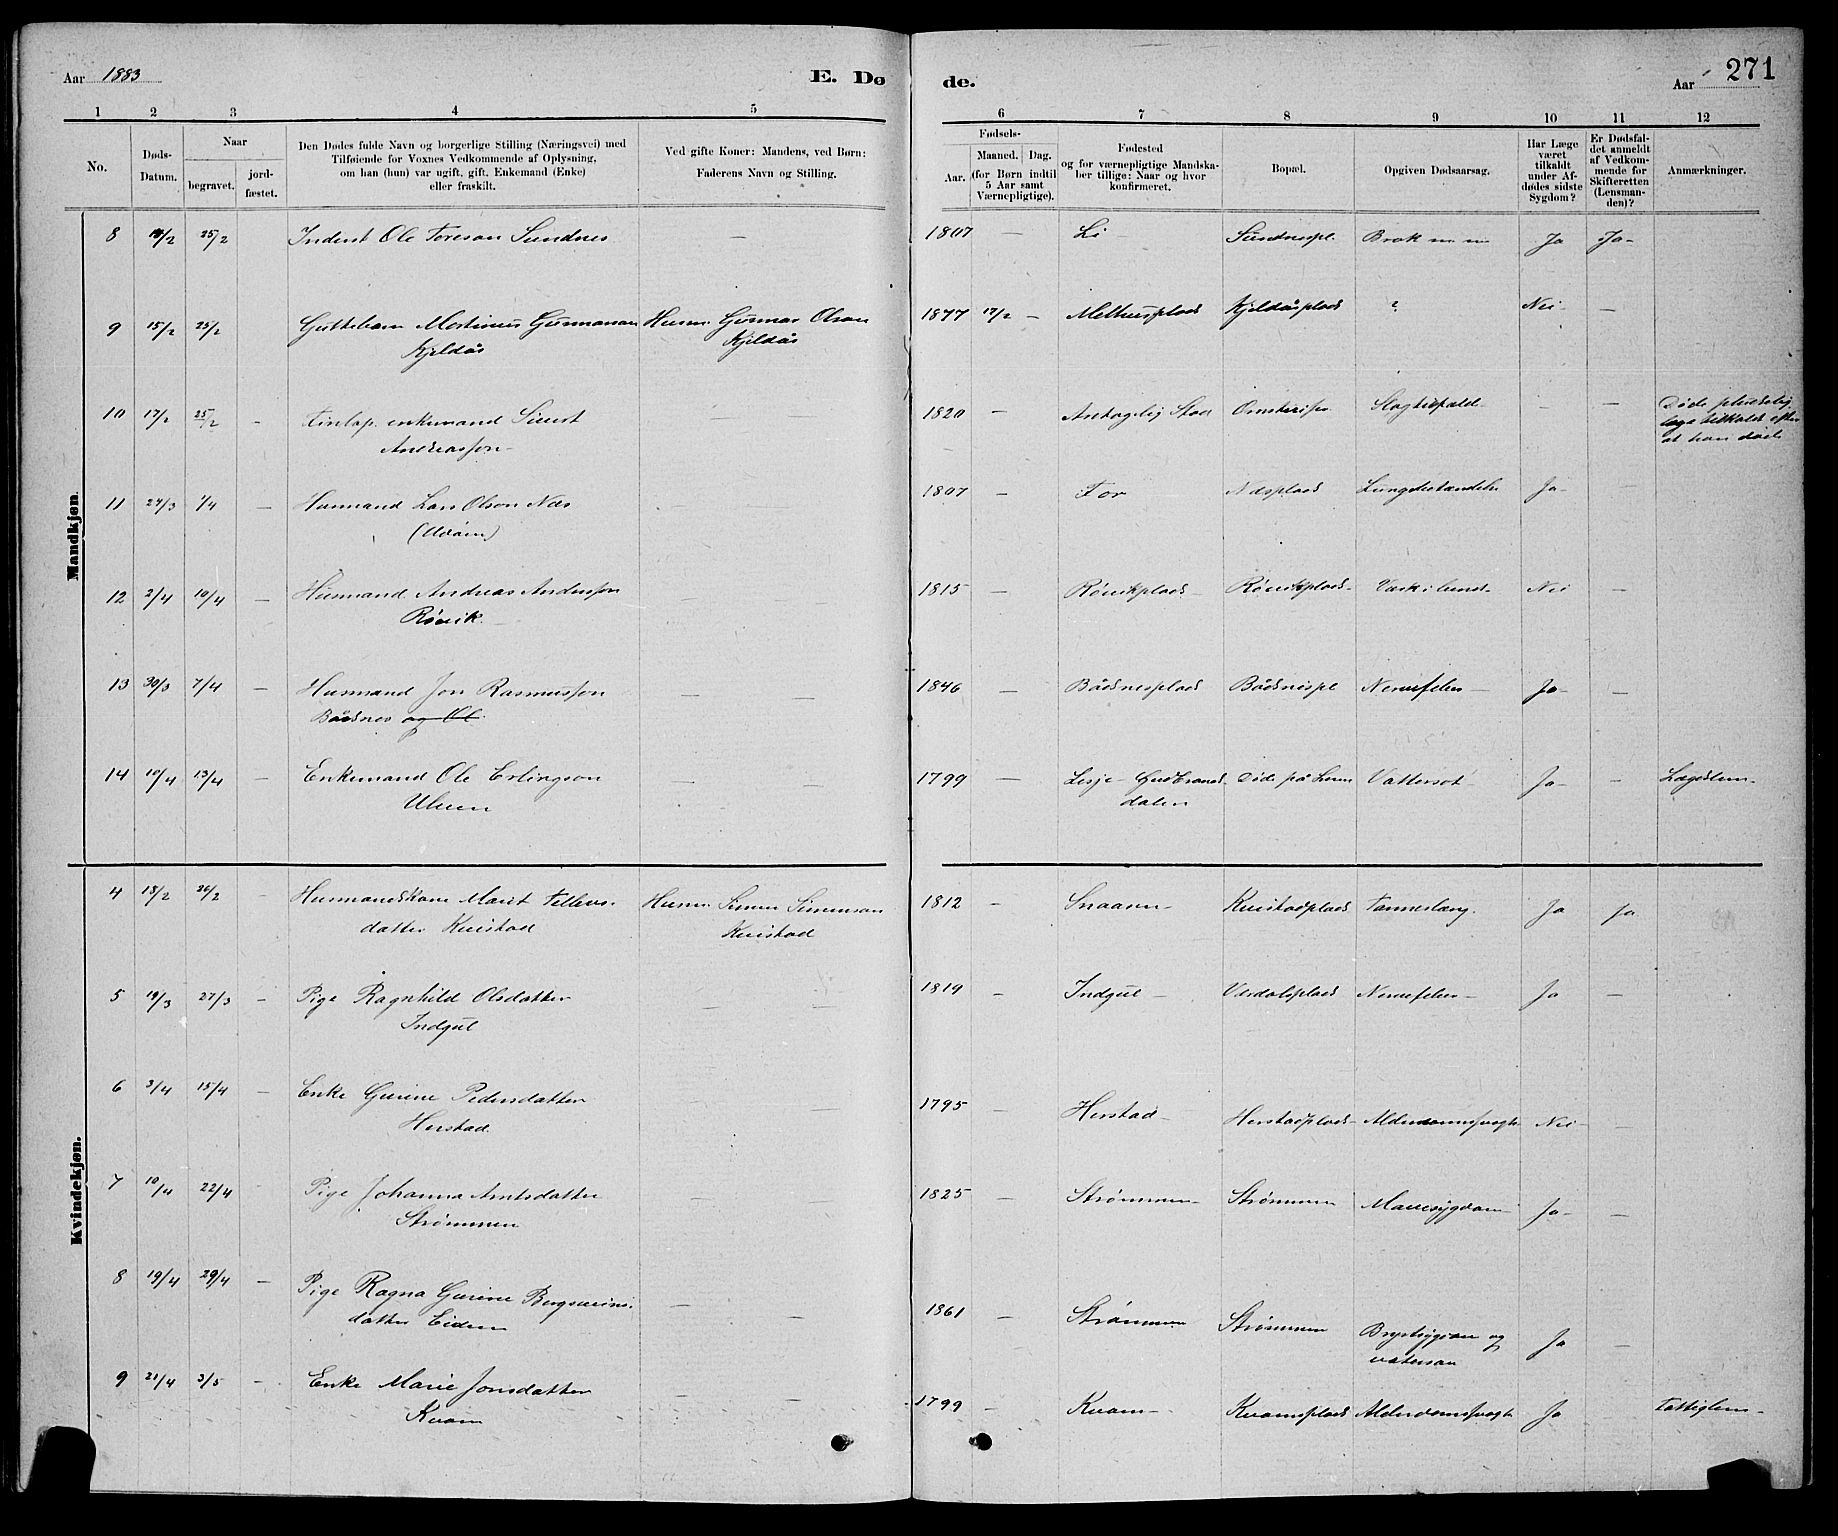 Aar 1883
E. Dø
de.
Aar 271
1 2 3 4 5 6 7 8 9 10 11 12
No.
Døds-Datum.
Naar
begravet.
jord-fæstet.
Den Dødes fulde Navn og borgerlige Stilling (Næringsvei) med
Tilføiende for Voxnes Vedkommende af Oplysning,
om han (hun) var ugift, gift, Enkemand (Enke)
eller fraskilt.
Ved gifte Koner: Mandens, ved Børn:
Faderens Navn og Stilling.
Fødsels-
Aar. Maaned. Dag.
(for Børn indtil
5 Aar samt
Værnepligtige).
Fødested
og for værnepligtige Mandska-
ber tillige: Naar og hvor
konfirmeret.
Bopæl.
Opgiven Dødsaarsag.
Har Læge
været
tilkaldt
under Af-
dødes sidste
Sygdom?
Er Dødsfal-
det anmeldt
af Vedkom-
mende for
Skifteretten
(Lensman-
den)?
Anmærkninger.
Mandkjøn.
8 25/2 Inderst Ole Toreson Sundnes — 1807 — Li — Sundnespl. Brok Ja Ja-
9 15/2 25/2 Guttebarn Martinus Gunnarsen Husm. Gunnar Olson 1877 17/2 — Melhusplads Kjeldåsplads ? Nei —
Kjeldås Kjeldås
10 17/2 25/2 - enkemand Simert 1820 — Slagtilfæld- - — Døde pludselig
Andreasson- læge tilkaldt efter
at han døde
11 24/3 1/4 — Husmand Lars Olson Næs — 1807 — For Næsplads Lungebetændelse Ja- —
12 2/4 10/4 — Husmand Andreas Anderson — 1815 — Rövikplads- Rövikplads- Værk i bryst- Nei —
Rövik. —
13 30/3 7/4 — Husmand Jon Rasmusson — 1846 — Bådsnesplads Bådsnespl Nervefeber — Ja- —
Bådsnes og Ol.
14 10/4 13/4 — Enkemand Ole Erlingson — 1799 — Lesje - Gudbrands- Vattersot Ja- — Lægdslem-
dalen
Kvindekjøn.
4 18/2 26/2 - Husmandskone Marit Tellevs- Husm. Simen Simenson 1812 - Snaasen- Kvistadplads Ja ja
datter Kvistad Kvistad
5 19/3 27/3 — Pige Ragnhild Olsdatter — 1819 — Indgul — Værdalsplads Nervefeber — Ja —
Indgul
6 3/4 15/4 — Enke Gurine Pedersdatter — 1795 — Herstad- Herstadplads- Alderdomssvagh Nei- —
Herstad.
7 10/4 22/4 Pige Johanna Arntsdatter — 1825 — Strømmen- Strømmen Mavesygdom Ja- —
Strømmen
8 19/4 29/4 — Pige Ragna Gurine Bergsveins- — 1861 — Strømmen Strømmen Brystsygdom og Ja —
datter Eidem vatersot
9 21/4 3/5 - Enke Marie Jonsdatter — 1799 — Kvam- Kvamsplads Alderdomssvagh Ja Fattiglem-
Kvam